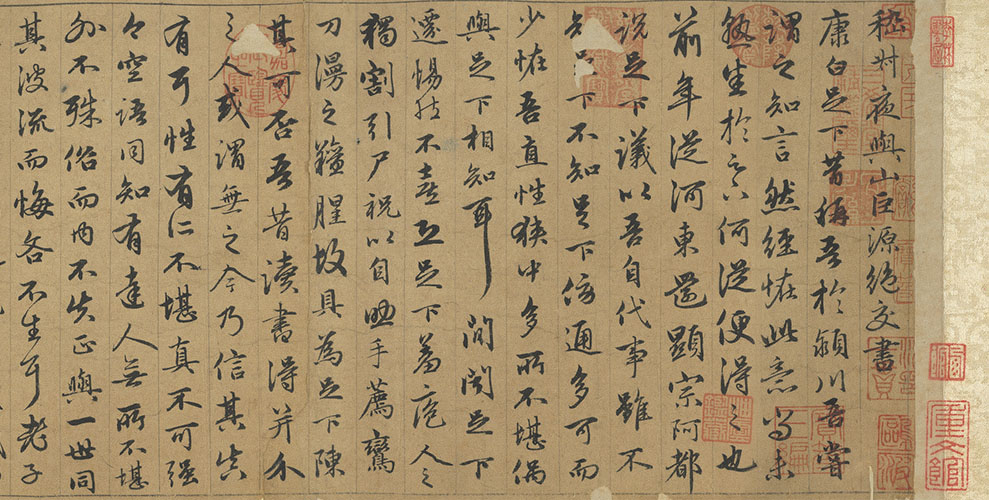 嵇叔夜與山巨源絕交書
康白足下昔稱吾於潁川吾嘗
謂之知言然經怪此意尚未
熟悉於足下何從便得之也
前年從河東還顯宗阿都
說足下議以吾自代事雖不
知足下不知足下傍通多可而
少怪吾直性狹中多所不堪偶
與足下相知耳間聞足下
遷惕然不喜恐足下羞庖人之
獨割引尸祝以自助手薦鸞
刀漫之羶腥故具為足下陳
其可否吾昔讀書得并介
之人或謂無之今乃信其真
有耳性有所不堪真不可強
今空語同知有達人無所不堪
外不殊俗而內不失正與一世同
其波流而悔吝不生耳老子